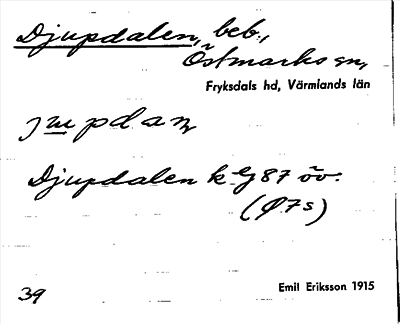 Djupdalen, beb.,
Östmarks sn,
Fryksdals hd, Värmlands län
Djupdalen k eg 87 öv.
(Ø7s)
39
Emil Eriksson 1915